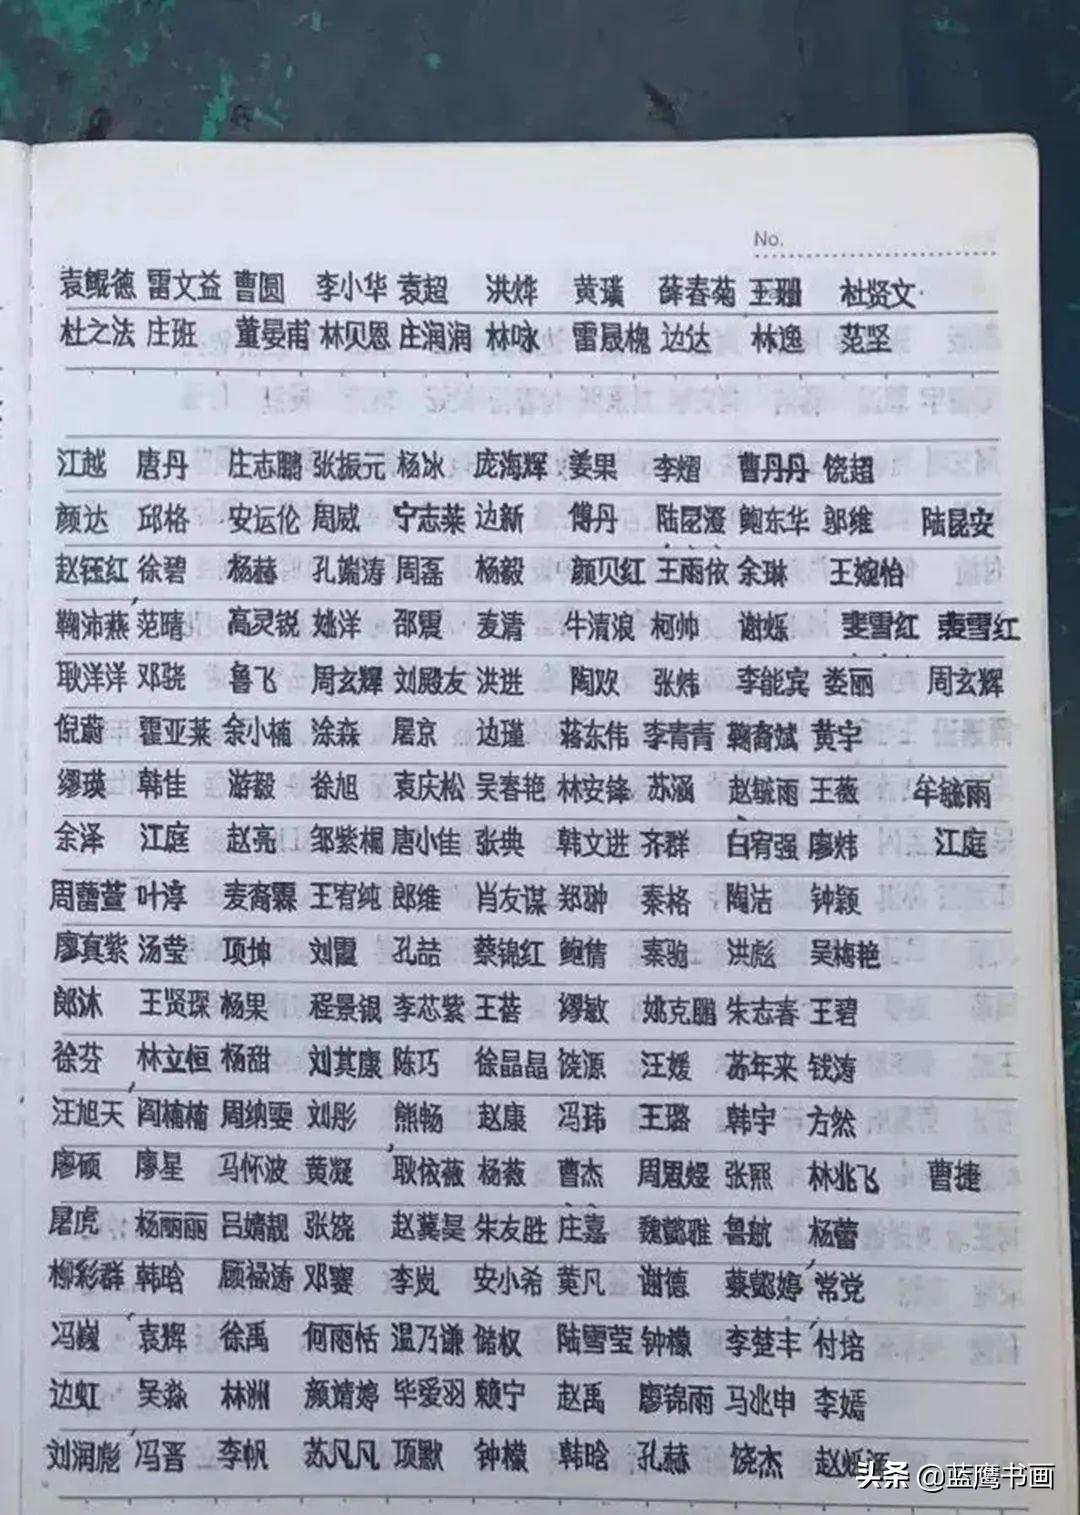 No.
袁鲲德 雷文益 曹圆 李小华 袁超 洪烨 黄瑱 薛春菊 王珊 杜贤文
杜之法 庄班 董晏甫 林贝恩 庄润润 林咏 雷晟槐 边达 林逸 范坚
江越 唐丹 庄志鹏 张振元 杨冰 庞海辉 姜果 李熠 曹丹丹 饶超
颜达 邱格 安运伦 周威 宁志莱 边新 傅丹 陆昆 鲍东华 邬维 陆昆安
赵钰红 徐碧 杨赫 孔端涛 周磊 杨毅 颜贝红 王雨依 余琳 王婉怡
鞠沛燕 范晴 高灵锐 姚洋 邵震 麦清 牛清浪 柯帅 谢烁 雪红 裴雪红
耿洋洋 邓骁 鲁飞 周玄辉 刘殿友 洪进 陶欢 张炜 李能宾 娄丽 周玄辉
倪蔚 霍亚莱 余小楠 涂森 屠京 边瑾 蒋东伟 李青青 鞠裔斌 黄宇
缪瑛 韩佳 游毅 徐旭 袁庆松 吴春艳 林安锋 苏涵 赵毓雨 王薇 牟毓雨
余泽 江庭 赵亮 邹紫楣 唐小佳 张典 韩文进 齐群 白宥强 廖炜 江庭
周蕾萱 叶淳 麦裔霖 王宥纯 郎维 肖友谋 郑翀 秦格 陶洁 钟颖
廖真紫 汤莹 项坤 刘霞 孔喆 蔡锦红 鲍倩 秦驹 洪彪 吴梅艳
郎沐 王贤琛 杨果 程景银 李芯紫 王蓓 缪敏 姚克鹏 朱志春 王碧
徐芬 林立恒 杨甜 刘其康 陈巧 徐晶晶 饶源 汪媛 苏年来 钱涛
汪旭天 阎楠楠 周纳雯 刘彤 熊畅 赵康 冯玮 王璐 韩宇 方然
廖硕 廖星 马怀波 黄凝 耿依薇 杨薇 曹杰 周思煜 张熙 林兆飞 曹捷
屠虎 杨丽丽 吕婧靓 张饶 赵冀昊 朱友胜 庄嘉 魏懿雅 鲁航 杨蕾
柳彩群 韩晗 顾禄涛 邓赛 李岚 安小希 黄凡 谢德 蔡懿婷 常党
冯巍 袁辉 徐禹 何雨恬 温乃谦 储权 陆雪莹 钟檬 李楚丰 付培
边虹 吴淼 林洲 颜靖婷 毕爱羽 赖宁 赵禹 廖锦雨 马兆申 李嫣
刘润彪 冯晋 李帆 苏凡凡 项默 钟檬 韩晗 孔赫 饶杰 赵
头条 @蓝鹰书画